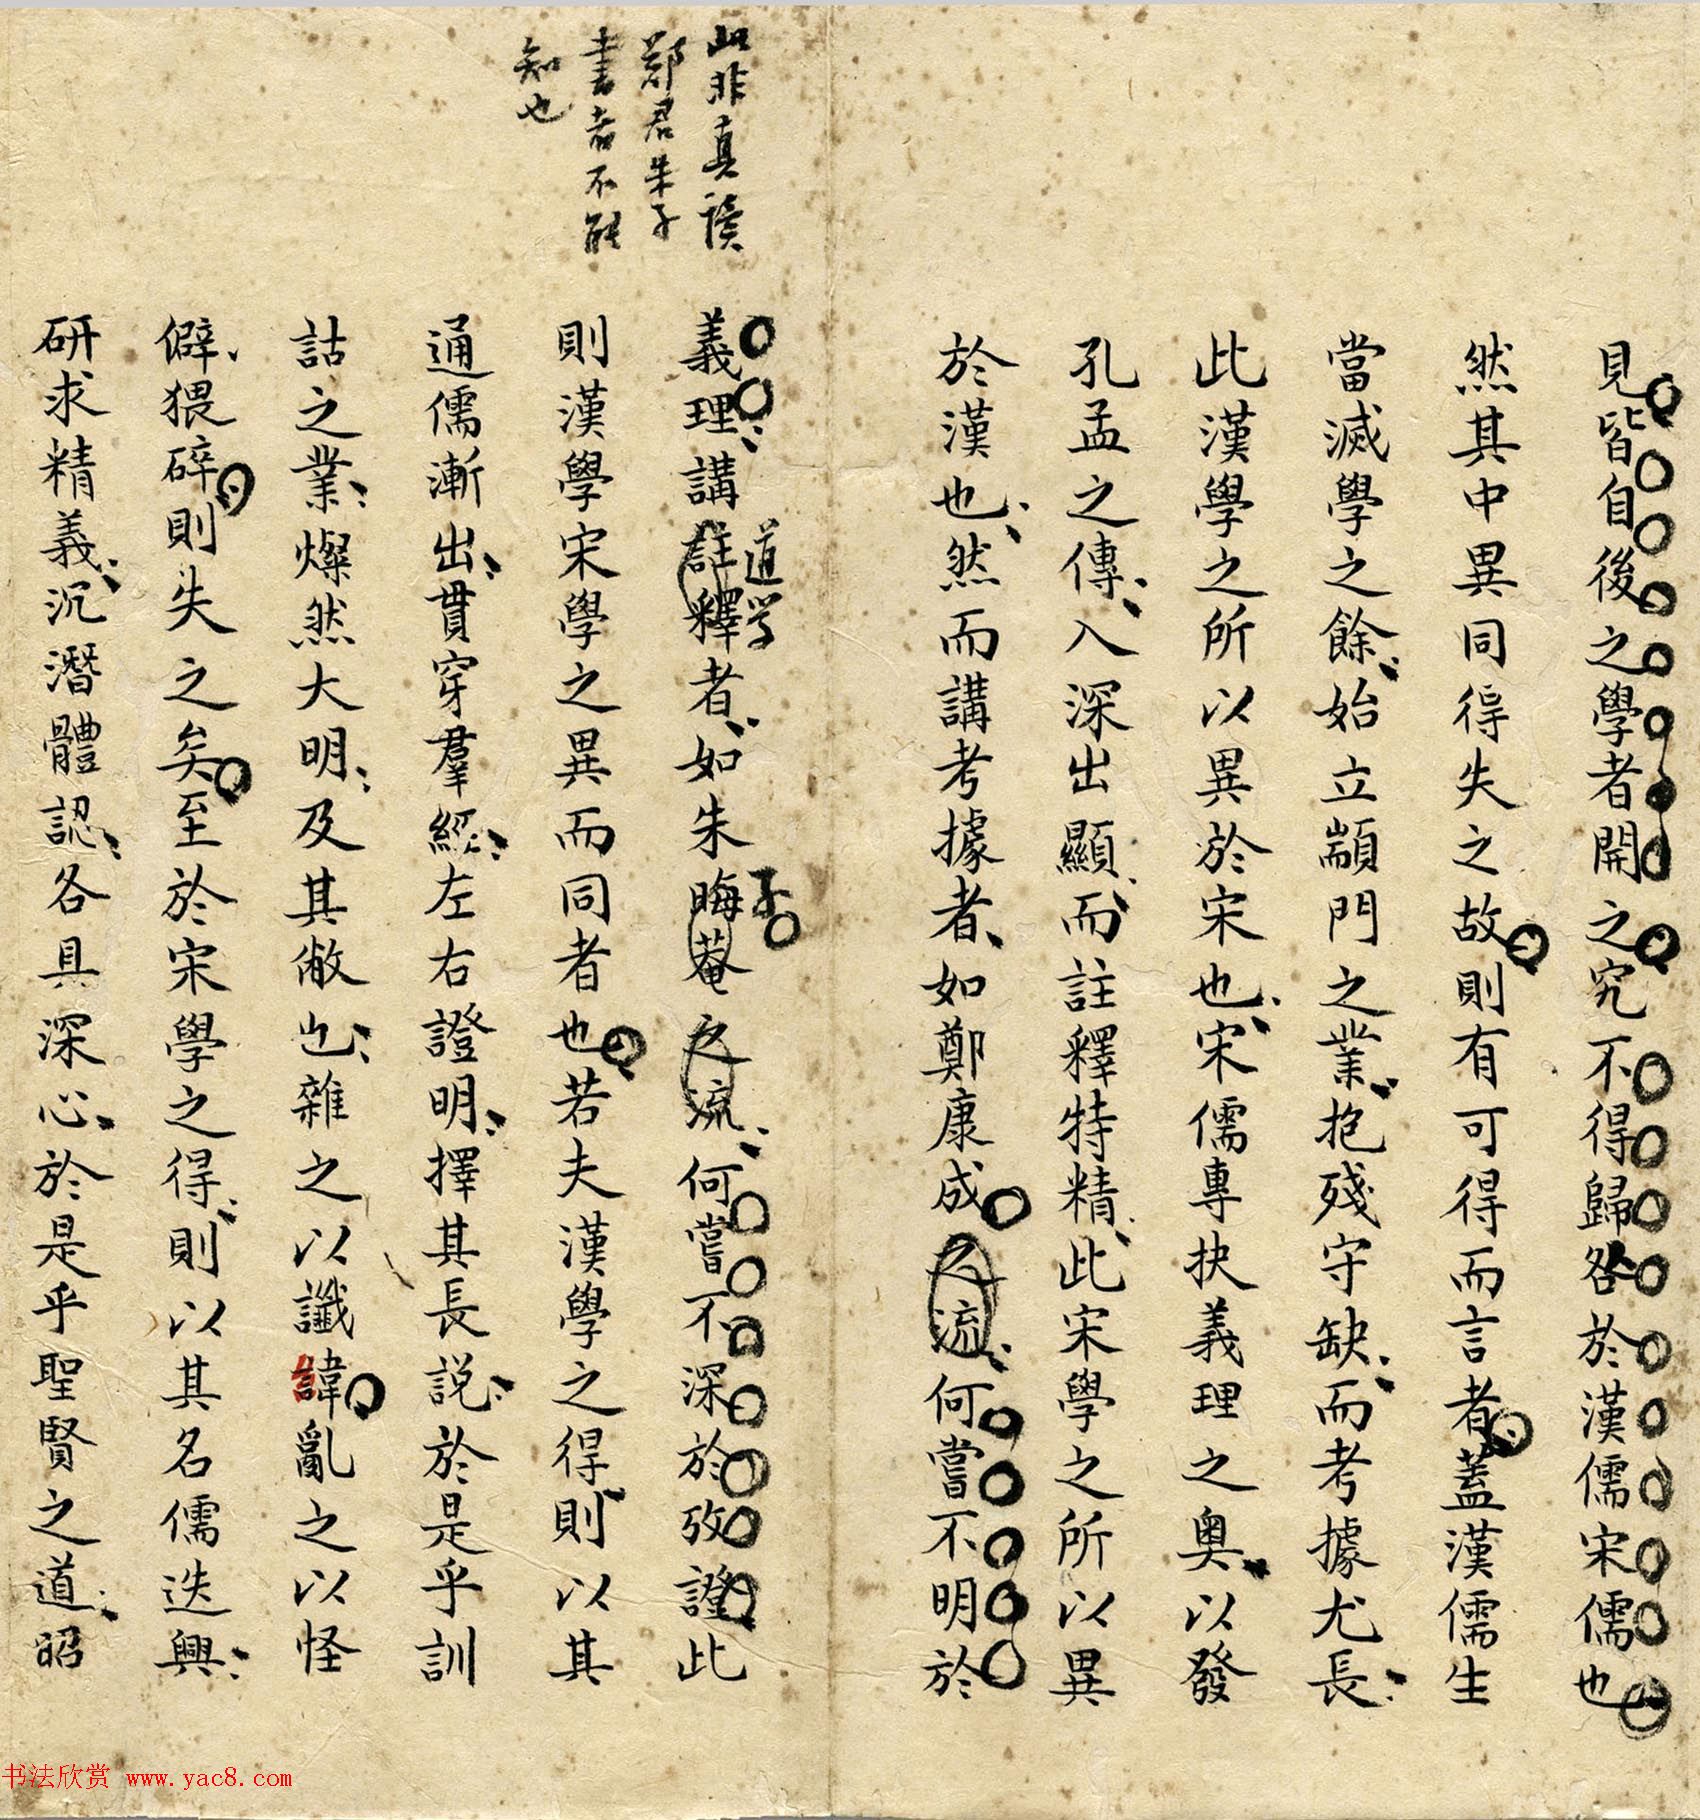 見皆自後之學者開之究不得歸咎於漢儒宋儒也
然其中異同得失之故則有可得而言者蓋漢儒生
當滅學之餘始立顓門之業抱殘守缺而考據尤長
此漢學之所以異於宋也宋儒專抉義理之奧以發
孔孟之傳入深出顯而註釋特精此宋學之所以異
於漢也然而講考據者如鄭康成之流何嘗不明於
此非真讀
鄭君朱子
書者不能
知也
義理講註釋者如朱晦菴之流何嘗不深於攷證此
道学
子
則漢學宋學之異而同者也若夫漢學之得則以其
通儒漸出貫穿羣經左右證明擇其長說於是乎訓
詁之業燦然大明及其敝也雜之以讖諱亂之以怪
僻猥碎則失之矣至於宋學之得則以其名儒迭興
研求精義沉潛體認各具深心於是乎聖賢之道昭
书法欣赏 www.yac8.com